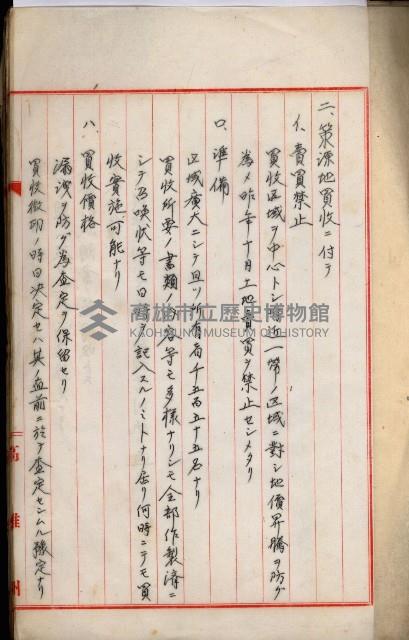 二、策源地買收ニ付テ
イ、賣買禁止
買收區域ヲ中心トシ附近一帶ノ區域ニ對シ地價昇騰ヲ防グ
為メ昨年十月土地賣買ヲ禁止セシメタリ
ロ、準備
区域廣大ニシテ且ツ所有者千五百五十五名ナリ
買收所要ノ書類ノ如キ等モ多様ナリシモ全部作製済ニ
シテ召喚状等モ日時ヲ記入スルノミトナリ居リ何時ニテモ買
收實施可能ナリ
ハ、買收價格
漏洩ヲ防グ為査定ヲ保留セリ
買收徴功ノ時日決定セバ其ノ直前ニ於テ査定セシムル豫定ナリ
高雄州
高雄市立歷史博物館
KAOHSIUNG MUSEUM OF HISTORY